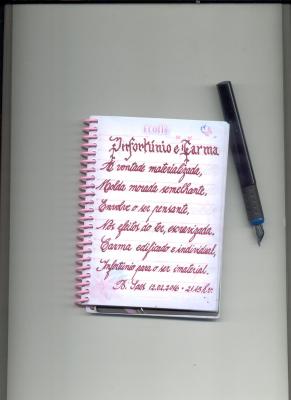 Infortúnio e Carma
A vontade materializada,
Molda morada semelhante,
Envolve o ser pensante,
Nós efeitos do ter, escravizada.
Carma edificado e individual,
Infortúnio para o ser imaterial.